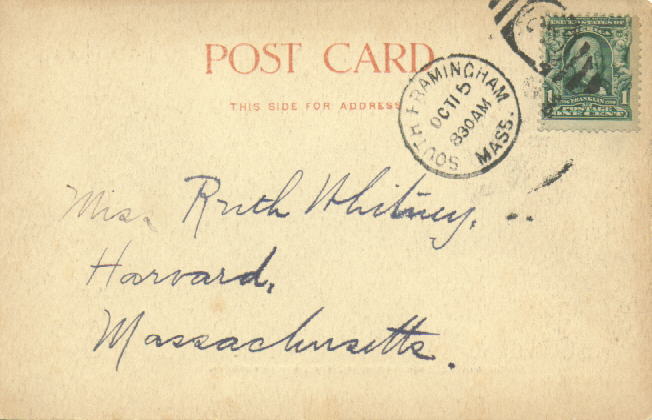 POST CARD
THIS SIDE FOR ADDRESS
SOUTH FRAMINGHAM
OCT 15
830AM
MASS.
AMERICA
1 FRANKLIN 1
POSTAGE
ONE CENT
Miss Ruth Whitney,
Harvard,
Massachusetts.